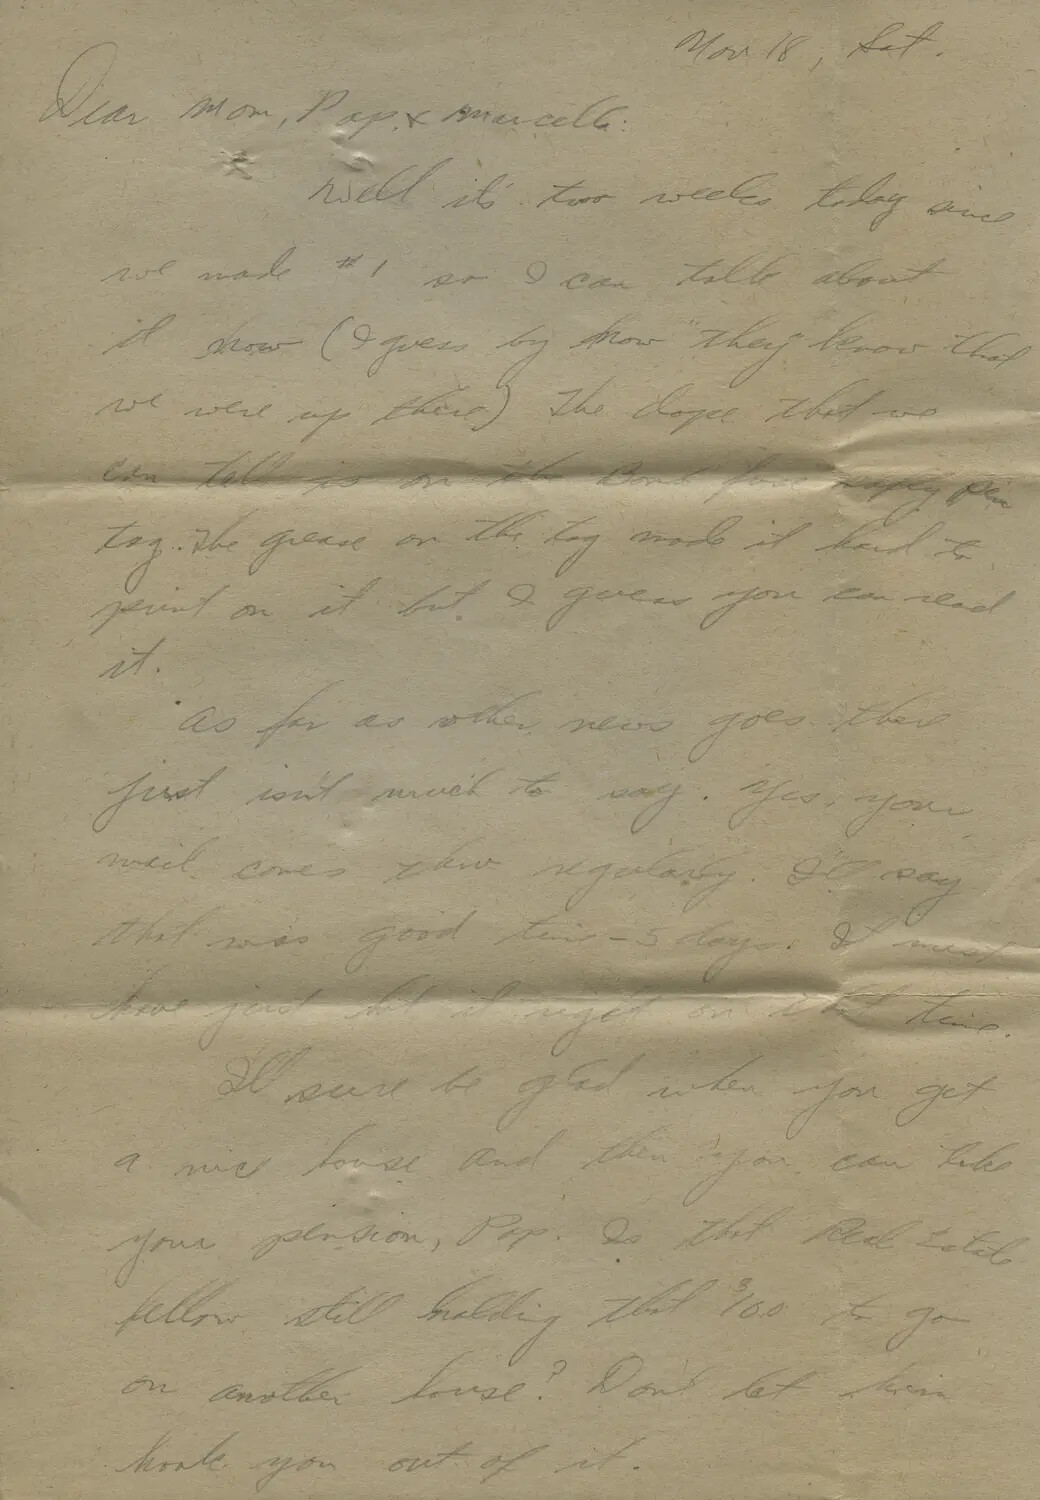 Nov 18, Sat.
Dear Mom, Pap, & Marcella:
Well it's two weeks today since
we made #1 so I can talk about
it now (I guess by now "they" know that
we were up there) The dope that we
can tell is on the Bomb fuse
tag. The grease on the tag made it hard to
print on it but I guess you can read
it.
As far as other news goes there
just isn't much to say. Yes, your
mail comes thru regularly. I'll say
that was good time - 5 days. It must
have just hit it right on that time.
I'll sure be glad when you get
a nice house and then you can take
your pension, Pap. Is that Real Estate
fellow still holding that $100 to go
on another house? Don't let him
you out of it.